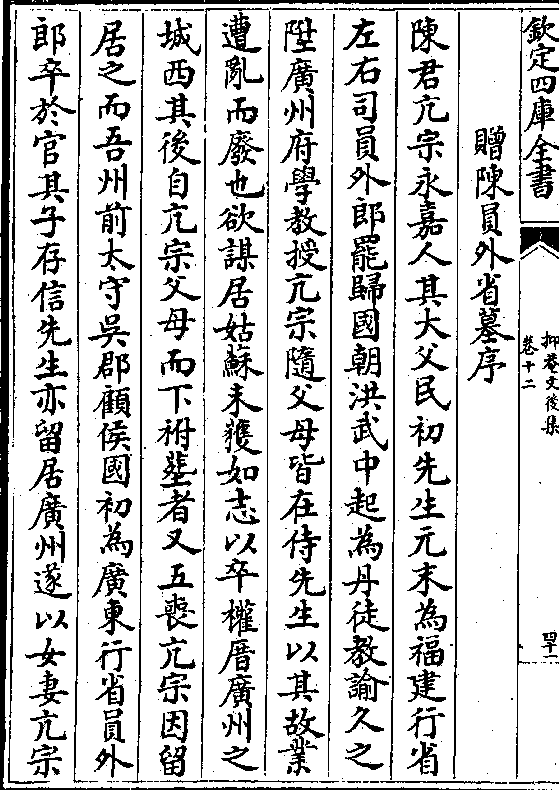 欽定四庫全書
抑菴文後集
卷十二
四十一
贈陳員外省墓序
陳君亢宗永嘉人其大父民初先生元末為福建行省
左右司員外郎罷歸國朝洪武中起為丹徒教諭久之
陞廣州府學教授亢宗隨父母皆在侍先生以其故業
遭亂而廢也欲謀居姑蘇未獲如志以卒權厝廣州之
城西其後自亢宗父母而下祔塟者又五喪亢宗因留
居之而吾州前太守吳郡顧侯國初為廣東行省員外
郎卒於官其子存信先生亦留居廣州遂以女妻亢宗